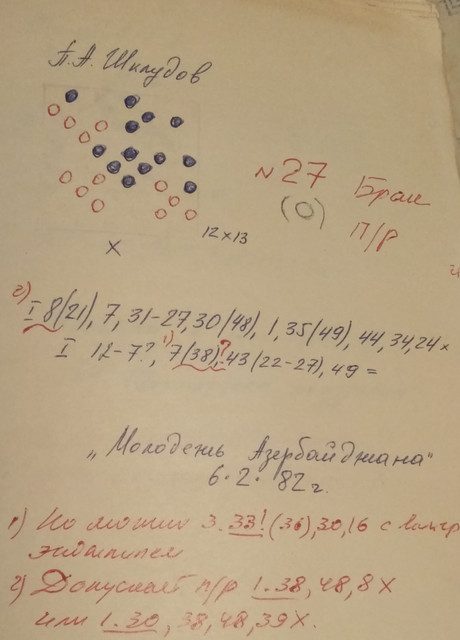 П.А. Шклудов
№27 Брак
(0) п/р
12x13
X
2) I 8(21), 7, 31-27, 30(48), 1, 35(49), 44, 34, 24x
I 12-7?, 1) 7(38)?, 43(22-27), 49=
„Молодежь Азербайджана"
6.2.82г.
1) Но можно 3.33!(36), 30, 16 с выигр
эндшпилем
2) Допускает п/р 1.38, 48, 8X
или 1.30, 38, 48, 39X.